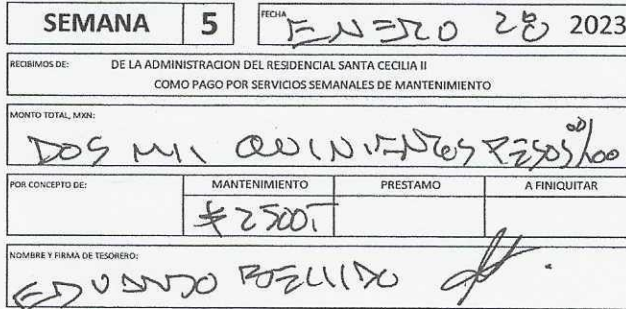 SEMANA 5 FECHA ENERO 28 2023
RECIBIMOS DE: DE LA ADMINISTRACION DEL RESIDENCIAL SANTA CECILIA II
COMO PAGO POR SERVICIOS SEMANALES DE MANTENIMIENTO
MONTO TOTAL, MXN:
DOS MIL QUINIENTOS PESOS 00/100
POR CONCEPTO DE: MANTENIMIENTO PRESTAMO A FINIQUITAR
$2500
NOMBRE Y FIRMA DE TESORERO:
EDUARDO BELLIDO